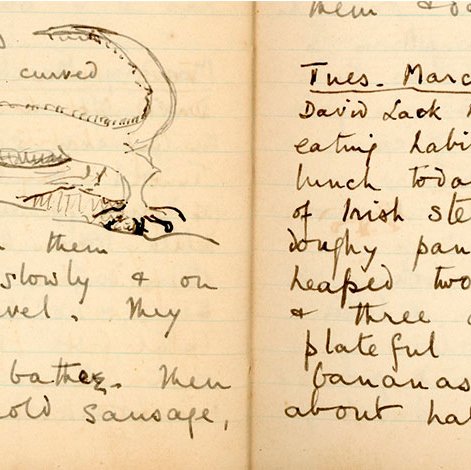 curved
them
slowly & on
vel. They
bathes. Then
old sausage,
them
Tues. Marc
David Lack
eating habi
lunch toda
of Irish ste
doughy pan
heaped two
& three
plateful
bananas
about hal